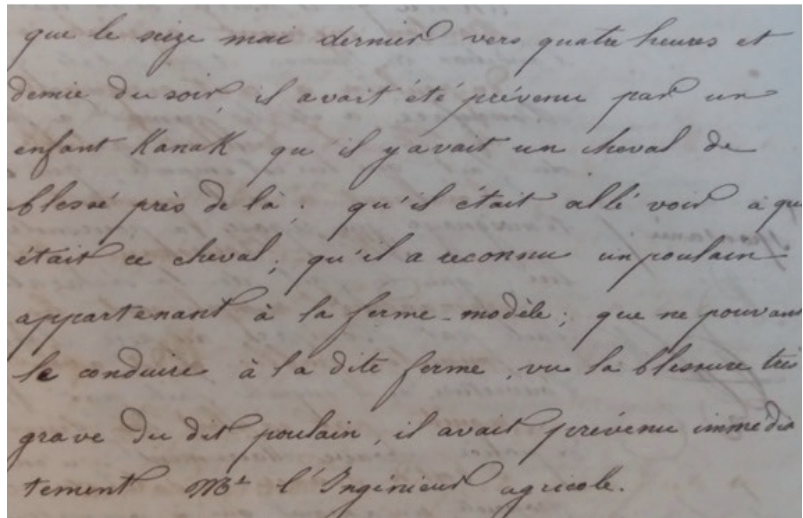 que le seize mai dernier vers quatre heures et
demie du soir, il avait été prévenu par un
enfant Kanak qu'il y avait un cheval de
blessé près de là ; qu'il était allé voir à qui
était ce cheval ; qu'il a reconnu un poulain
appartenant à la ferme-modèle ; que ne pouvant
le conduire à la dite ferme, vu la blessure très
grave du dit poulain, il avait prévenu immédia
tement Mr l'Ingénieur agricole.